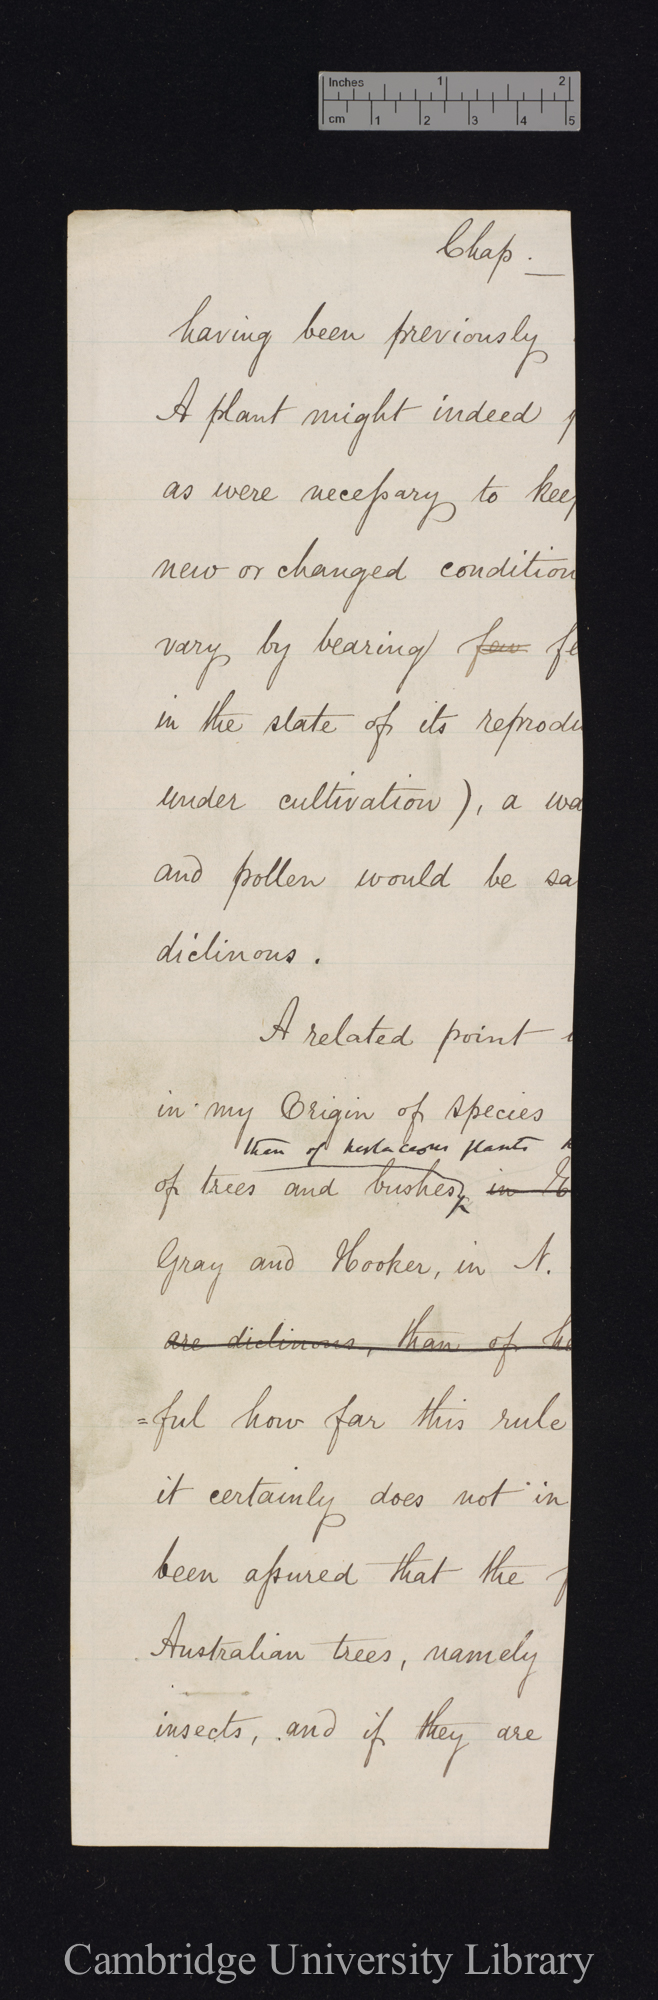 Inches 1 2
cm 1 2 3 4 5
Chap.
having been previously
A plant might indeed
as were necessary to keep
new or changed condition
vary by bearing few fe
in the state of its reprodu
under cultivation), a wa
and pollen would be sa
diclinous.
A related point
in my Origin of species
than of herbaceous plants
of trees and bushes, in
Gray and Hooker, in N.
are diclinous, than of he
=ful how far this rule
it certainly does not in
been assured that the
Australian trees, namely
insects, and if they are
Cambridge University Library